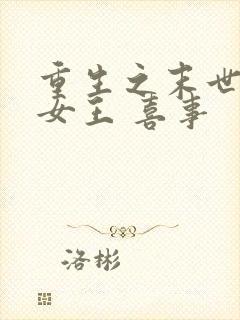 重生之末世
女主 喜事
洛彬